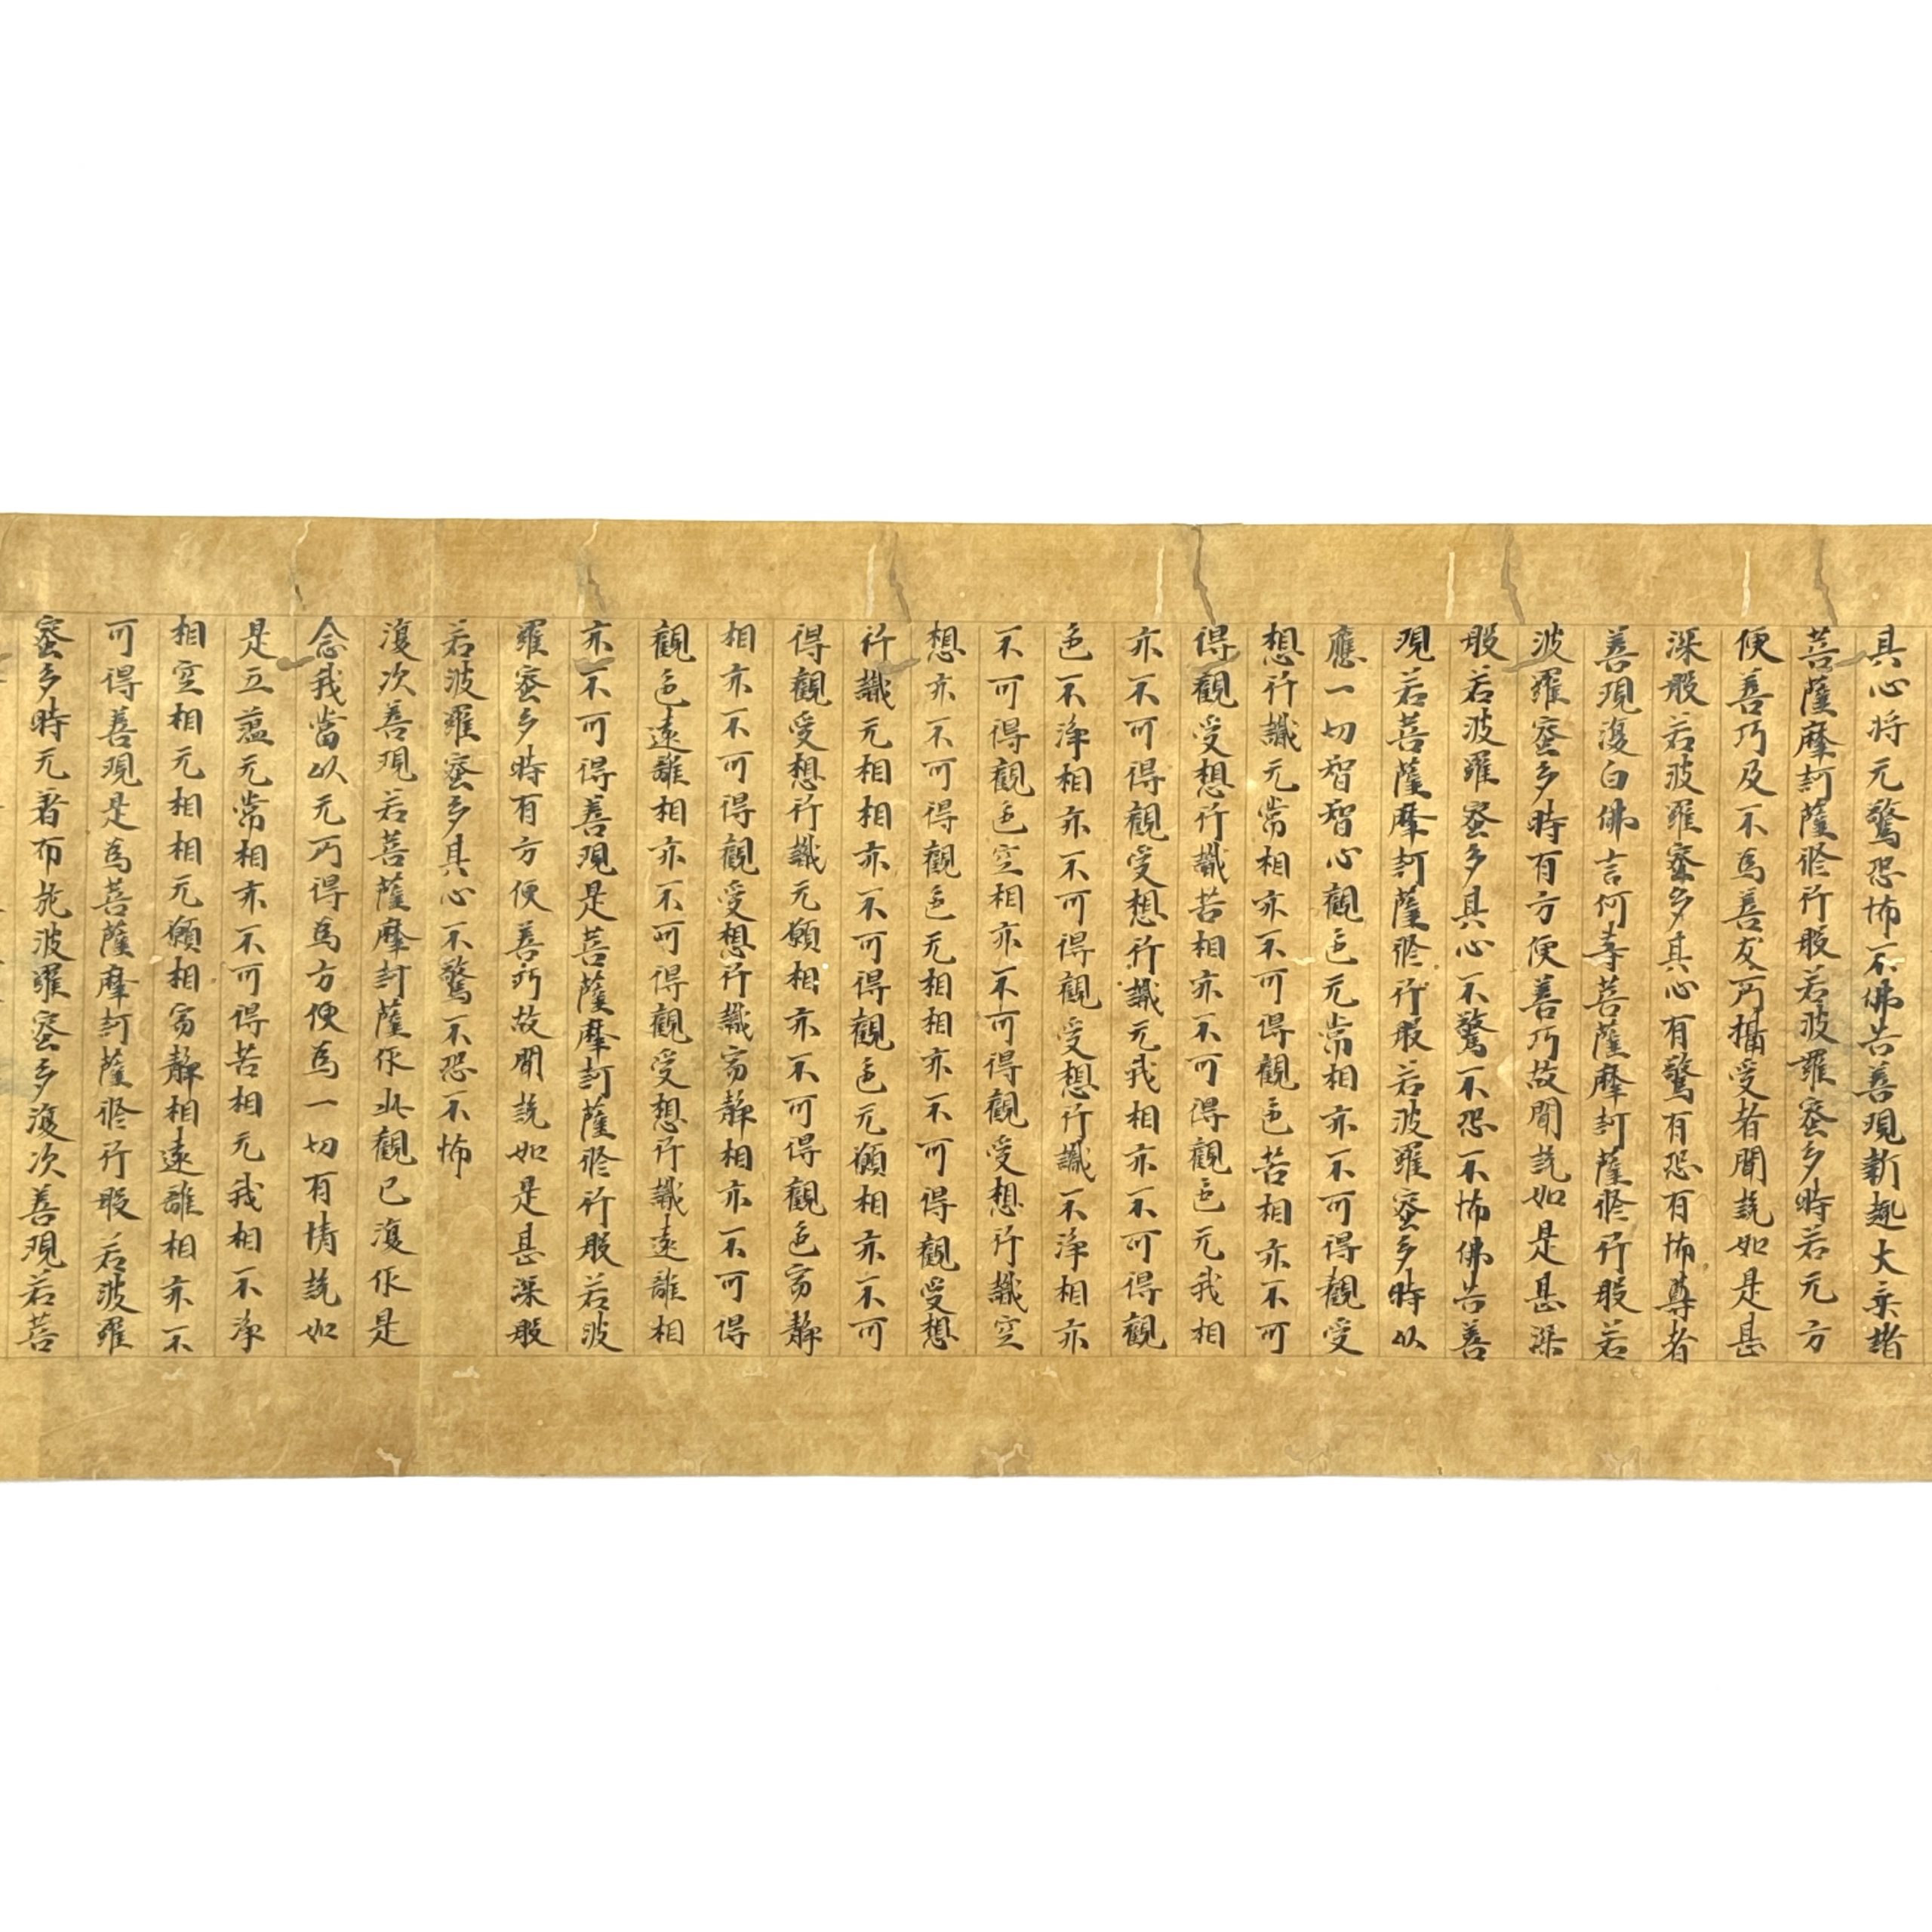 其心將无驚恐怖不佛告善現新趣大乘諸
菩薩摩訶薩修行般若波羅蜜多時若无方
便善巧及不為善友所攝受者聞說如是甚
深般若波羅蜜多其心有驚有恐有怖尊者
善現復白佛言何等菩薩摩訶薩修行般若
波羅蜜多時有方便善巧故聞說如是甚深
般若波羅蜜多其心不驚不恐不怖佛告善
現若菩薩摩訶薩修行般若波羅蜜多時以
應一切智智心觀色无常相亦不可得觀受
想行識无常相亦不可得觀色苦相亦不可
得觀受想行識苦相亦不可得觀色无我相
亦不可得觀受想行識无我相亦不可得觀
色不淨相亦不可得觀受想行識不淨相亦
不可得觀色空相亦不可得觀受想行識空
想亦不可得觀色无相相亦不可得觀受想
行識无相相亦不可得觀色无願相亦不可
得觀受想行識无願相亦不可得觀色寂靜
相亦不可得觀受想行識寂靜相亦不可得
觀色遠離相亦不可得觀受想行識遠離相
亦不可得善現是菩薩摩訶薩修行般若波
羅蜜多時有方便善巧故聞說如是甚深般
若波羅蜜多其心不驚不恐不怖
復次善現若菩薩摩訶薩作此觀已復作是
念我當以无所得為方便為一切有情說如
是五蘊无常相亦不可得苦相无我相不淨
相空相无相相无願相寂靜相遠離相亦不
可得善現是為菩薩摩訶薩修行般若波羅
蜜多時无著布施波羅蜜多復次善現若菩